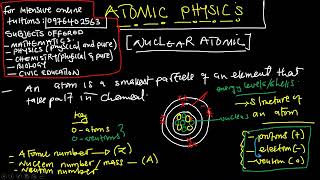 for Intensive online
tuitions: 0976402563
SUBJECTS OFFERED
- MATHEMATICS
- PHYSICS (Physical and pure)
- CHEMISTRY (physical & pure)
- BIOLOGY
- CIVIC EDUCATION
ATOMIC PHYSICS
[NUCLEAR ATOMIC]
- An atom is a smallest particle of an element that
take part in Chemical
energy levels/shells
key
0 - atoms
0 - neutrons
nucleus
Structure of
an atom
protons (+)
electron (-)
neutron (0)
- Atomic number → (Z)
- Nucleon number / mass → (A)
- Neutron number